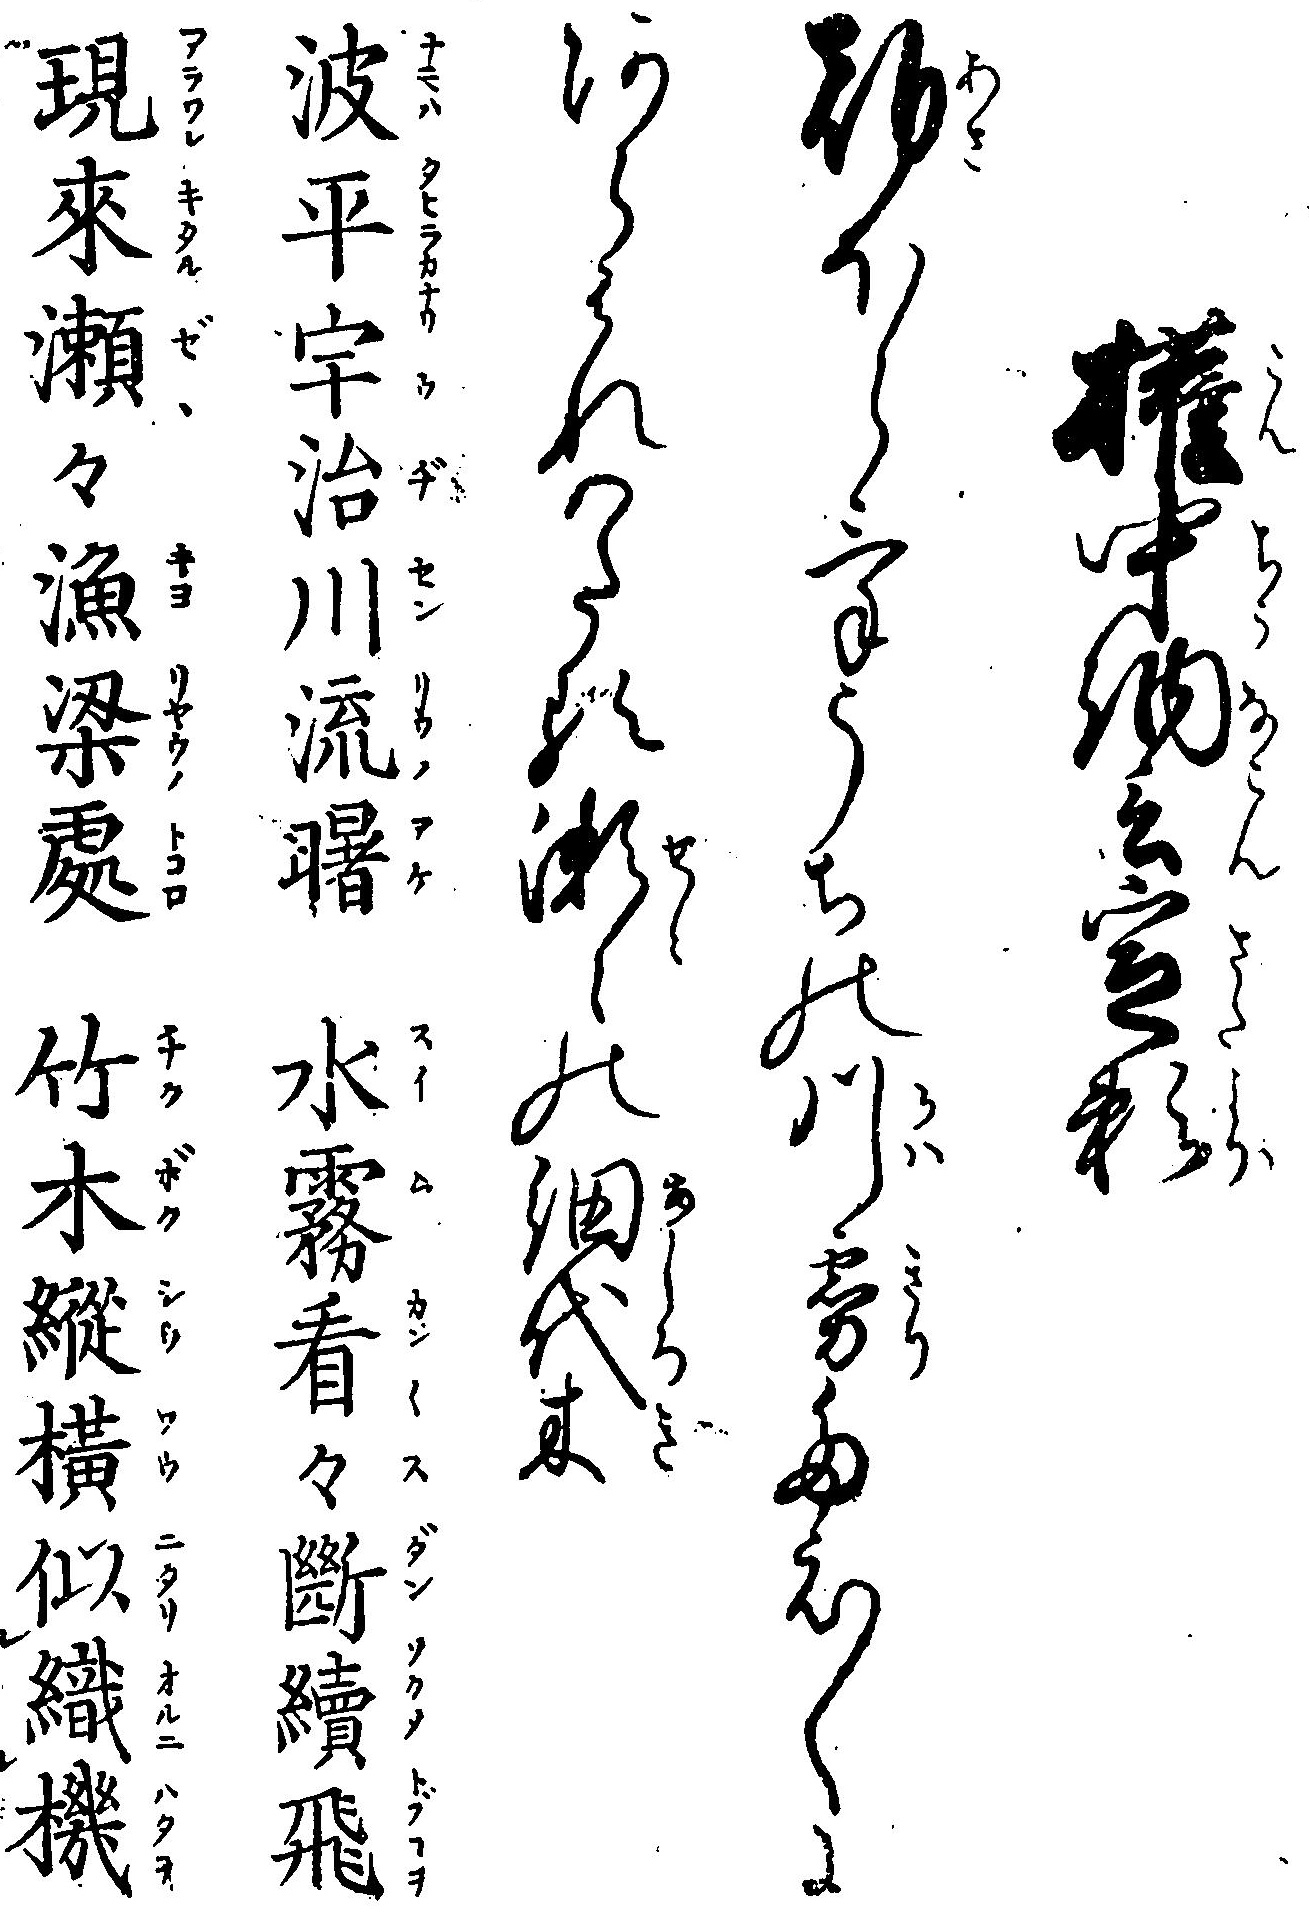 權中納言定頼
朝ほらけうちの川霧たえ〳〵に
あらはれわたる瀬〻の網代木
波平宇治川流曙　水霧看々斷續飛
現來瀬々漁梁處　竹木縱橫似織機